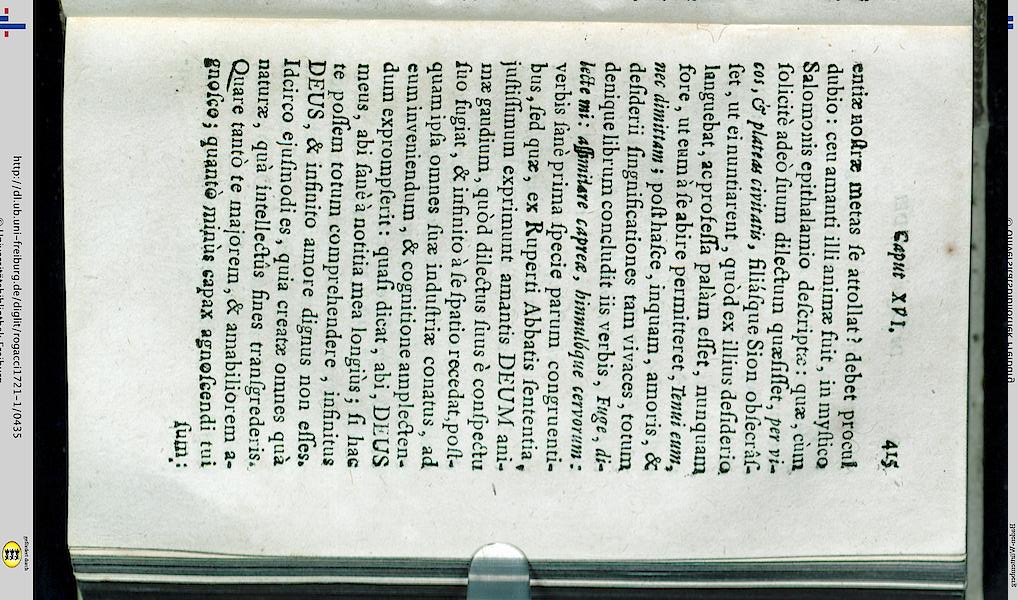 Caput XVI. 415
entiæ noſtræ metas ſe attollat? debet procul
dubio: ceu amanti illi animæ fuit, in myſtico
Salomonis epithalamio deſcriptæ: quæ, cùm
ſolicitè adeò ſuum dilectum quæſiſſet, per vi-
cos, & plateas civitatis, filiáſque Sion obſecráſ-
ſet, ut ei nuntiarent, quòd ex illius deſiderio
languebat, ac profeſſa palàm eſſet, nunquam
fore, ut eum à ſe abire permitteret, Tenui eum,
nec dimittam; poſt haſce, inquam, amoris, &
deſiderii ſingnificationes tam vivaces, totum
denique librum concludit iis verbis, Fuge, di-
lecte mi: aſſimilare capreæ, hinnuloque cervorum:
verbis ſanè prima ſpecie parum congruenti-
bus, ſed quæ, ex Ruperti Abbatis ſententia,
juſtiſſimum exprimunt amantis DEUM ani-
mæ gaudium, quòd dilectus ſuus è conſpectu
ſuo fugiat, & infinito à ſe ſpatio recedat, poſt-
quam ipſa omnes ſuæ induſtriæ conatus, ad
eum inveniendum, & cognitione amplecten-
dum exprompſerit: quaſi dicat, abi, DEUS
meus, abi ſanè à notitia mea longiùs; ſi hac
te poſſem totum comprehendere, infinitus
DEUS, & infinito amore dignus non eſſes.
Idcirco ejuſmodi es, quia creatæ omnes quà
naturæ, quà intellectûs fines tranſgrederis.
Quare tantò te majorem, & amabiliorem a-
gnoſco; quantò minùs capax agnoſcendi tui
ſum:
http://dl.ub.uni-freiburg.de/diglit/rogacci1721-1/0435
© Universitätsbibliothek Freiburg
gefördert durch